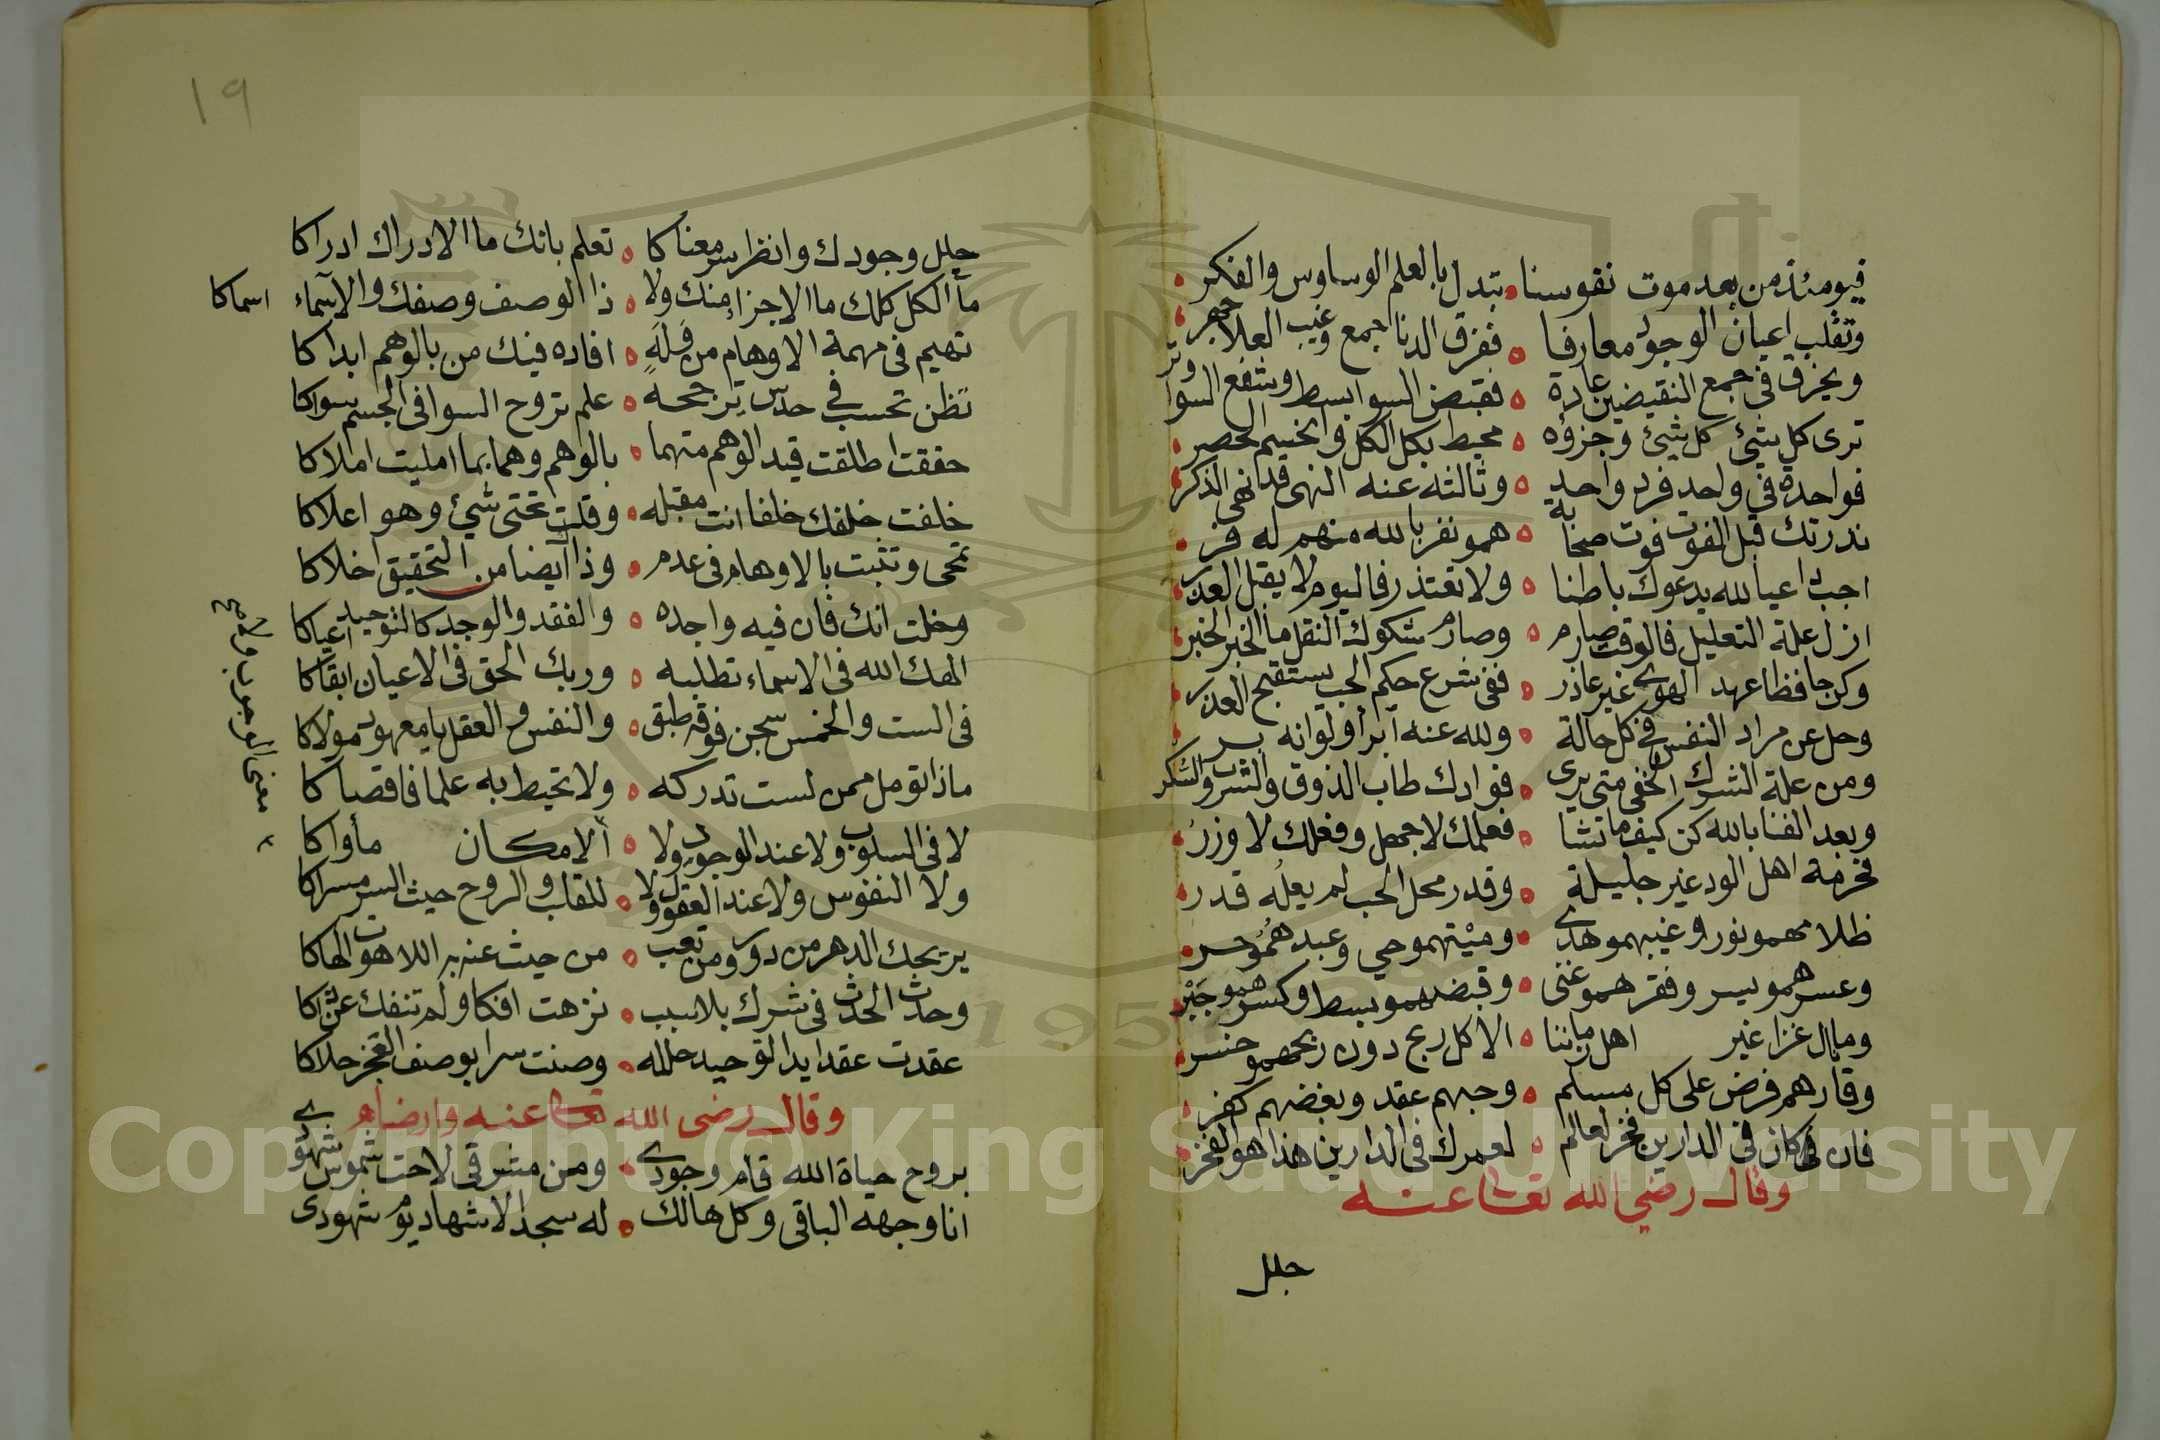 فيومئذ من بعد موت نفوسنا ٥ تبدل بالعلم الوساوس والفكر ٥
وتقلب اعيان الوجود معارفا ٥ ففرق الدنا جمع وغيب العلا جهر ٥
ويخرق في جمع النقيضين عادة ٥ فقبض السوا بسط وشفع السوا وتر
ترى كل شئ كل شئ وجزؤه ٥ محيط بكل الكل وانخيم الحصر ٥
فواحدة في واحد فرد واحد ٥ وثالثه عنه النهى قد انهى الذكر ٥
ندرتك قبل الفوت فوت صحابة ٥ همو نفر بالله منهم له فر ٥
اجب داعيا لله يدعوك باطنا ٥ ولا تعتذر فاليوم لا يقبل العذر ٥
ازل علة التعليل فالوقت صارم ٥ وصارم شكوك النقل ما الخبر الخبر ٥
وكن حافظا عهد الهوى غير عاذر ٥ ففي شرع حكم الحب يستقبح العذر ٥
وحل عن مراد النفس في كل حالة ٥ ولله عنه ابرأ ولو انه بر ٥
ومن علة الشرك الخفي متى يرى ٥ فوادك طاب الذوق والشرب والسكر
وبعد الفنا بالله كن كيف ما تشا ٥ فعلمك لا جهل وفعلك لا وزر ٥
فخرمة اهل الود غير جليلة ٥ وقدر محل الحب لم يعله قدر ٥
ظلامهمو نور وغيبهمو هدى ٥ وميتهمو حي وعبدهمو حر ٥
وعسرهمو يسر وفقرهمو غنى ٥ وقبضهمو بسط وكسرهمو جبر ٥
ومال غزا غير اهل زماننا ٥ الا كل ربح دون ربحهمو خسر ٥
وقارهم فرض على كل مسلم ٥ وحبهم عقد وبغضهم كفر ٥
فان كان في الدارين فخر لعالم ٥ لعمرك في الدارين هذا هو الفخر ٥
وقال رضي الله تعالى عنه
جلل
١٩
جلل وجودك وانظر سر معناكا ٥ تعلم بانك ما الادراك ادراكا
ما الكل كلك ما الاجزا منك ولا ٥ ذا الوصف وصفك والاسماء اسماكا
تهيم في مهمة الاوهام من وله ٥ افاده فيك من بالوهم ابداكا
تظن تحسب في حدس ترجحه ٥ علم تروح السوا في الجسم سواكا
حققت اطلقت قيد الوهم متهما ٥ بالوهم وهما بما امليت املاكا
خلفت خلفك خلفا انت مقبله ٥ وقلت تحتى شئ وهو اعلاكا
تمحى وتثبت بالاوهام في عدم ٥ وذا ايضا من التحقيق اخلاكا
وخلت انك فان فيه واجده ٥ والفقد والوجد كالتوحيد اعياكا
الهك الله في الاسماء تطلبه ٥ وربك الحق في الاعيان ابقاكا
في الست والخمس سجن فوقه طبق ٥ والنفس والعقل يا معهود مولاكا
ماذا تومل ممن لست تدركه ٥ ولا تحيط به علما فاقصاكا
لا في السلوب ولا عند الوجود ولا ٥ الامكان مأواكا
ولا النفوس ولا عند العقول ولا ٥ للقلب والروح حيث السر مسراكا
يريحك الدهر من دور ومن تعب ٥ من حيث عنه به اللاهوت الهاكا
وحدث الحدث في شرك بلا سبب ٥ نزهت افكا ولم تنفك عن ذاكا
عقدت عقدا يد التوحيد حلله ٥ وصنت سرا بوصف العجز حلاكا
وقال رضى الله تعالى عنه وارضاه
بروح حياة الله قام وجودي ٥ ومن مشرقي لاحت شموس شهودي
انا وجهه الباقي وكل هالك ٥ له سجد الاشهاد يوم شهودى
Copyright © King Saud University
1957